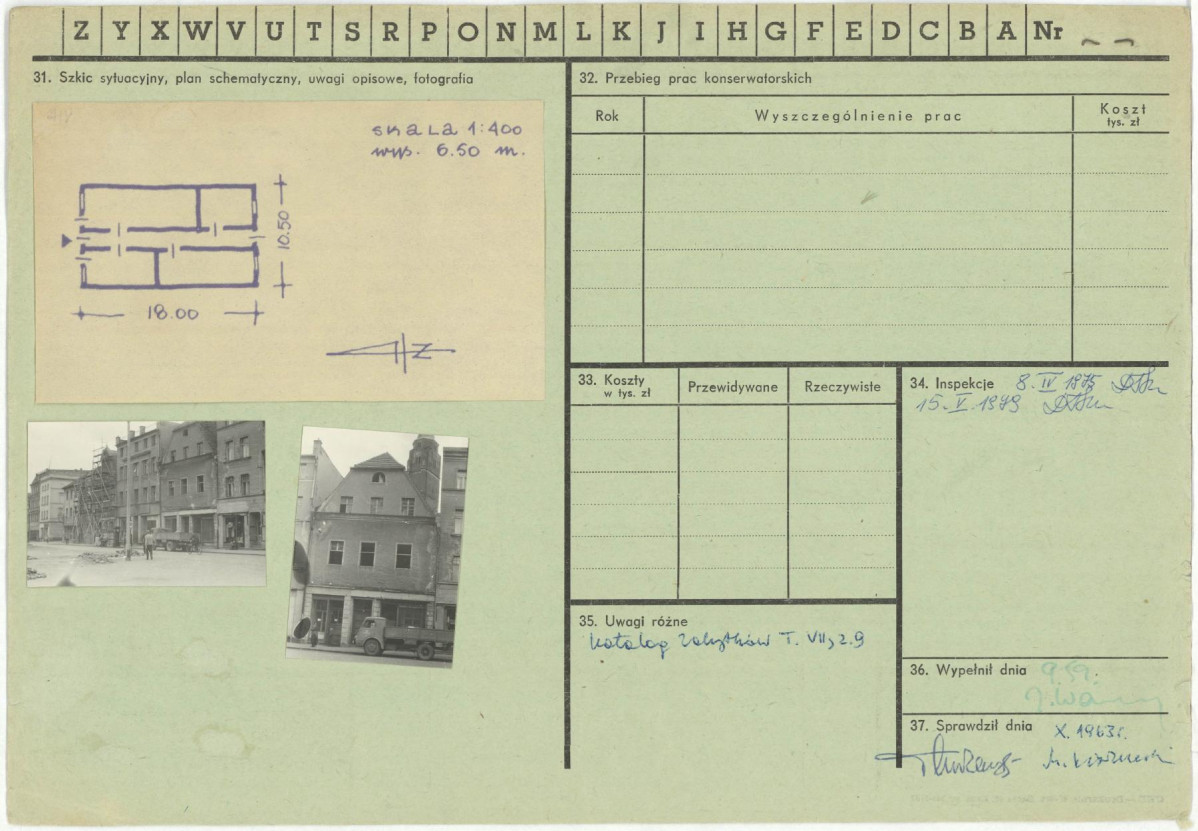 Z Y X W V U T S R P O N M L K J I H G F E D C B A Nr
31. Szkic sytuacyjny, plan schematyczny, uwagi opisowe, fotografia
SKALA 1:400
wys. 6.50 m.
10.50
18.00
Z
32. Przebieg prac konserwatorskich
Rok
Wyszczególnienie prac
Koszt
tys. zł
33. Koszty
w tys. zł
Przewidywane
Rzeczywiste
34. Inspekcje 8. IV 1975
15. V. 1979
35. Uwagi różne
Katalog Zabytków T. VII, z. 9
36. Wypełnił dnia 9.59.
37. Sprawdził dnia X. 1963 r.